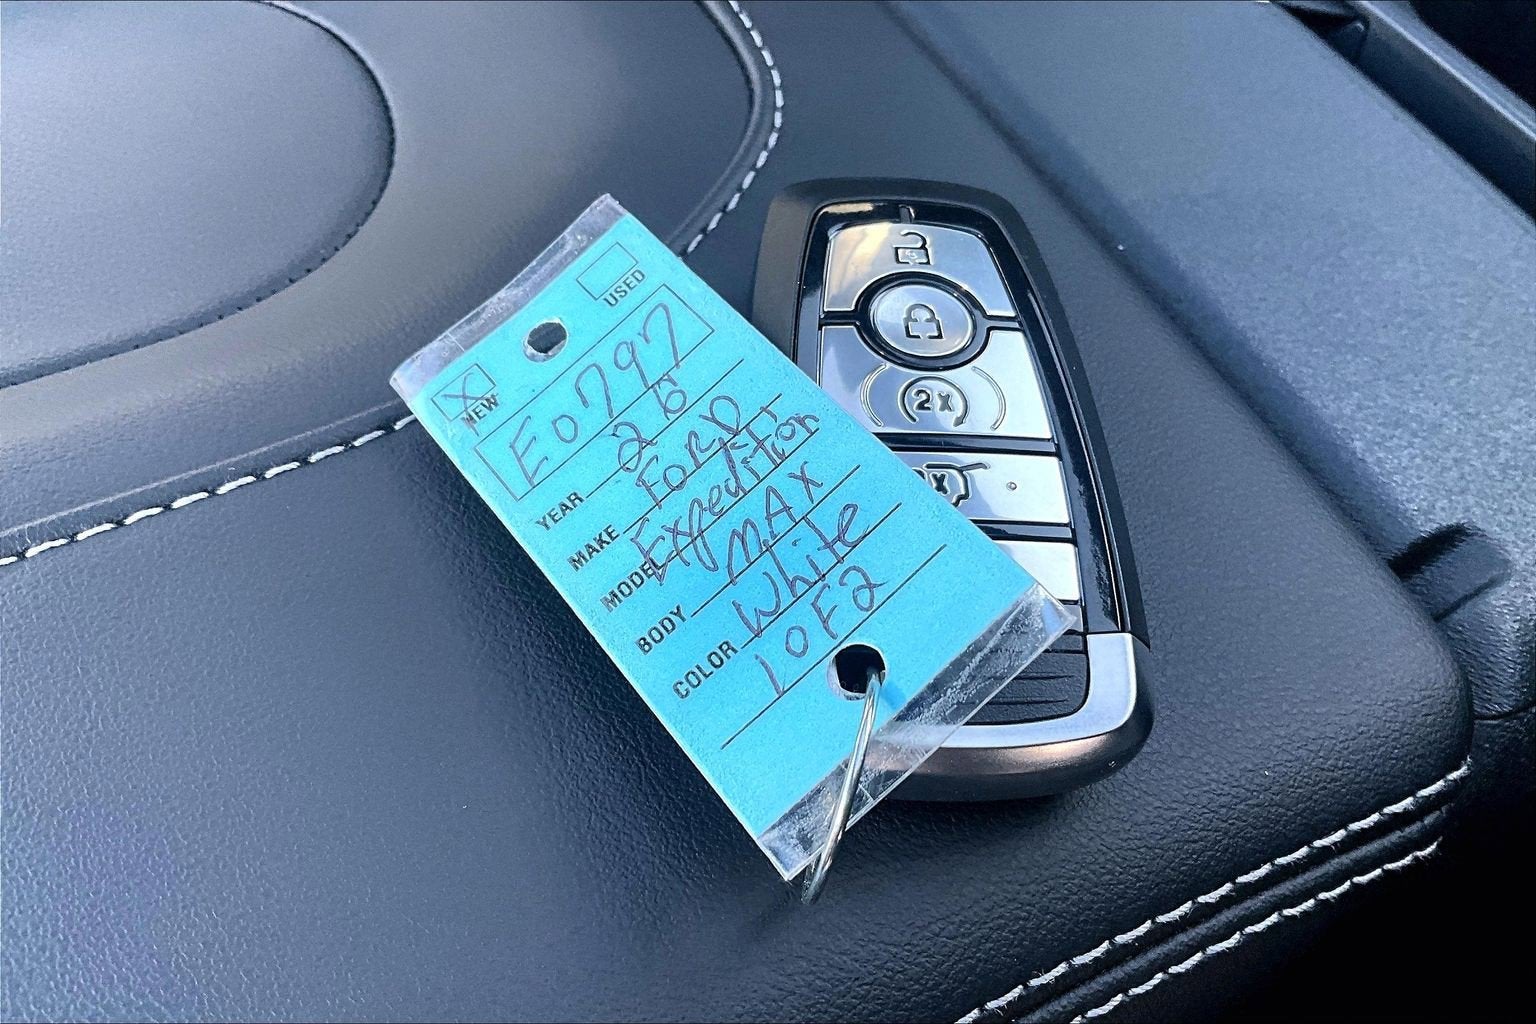 USED
NEW X
E0797
YEAR 26
MAKE FORD
MODEL Expedition
BODY MAX
COLOR White
1 OF 2
2x
x